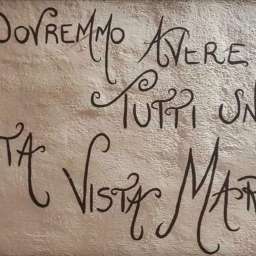 DOVREMMO AVERE
TUTTI UN
TA VISTA MAR